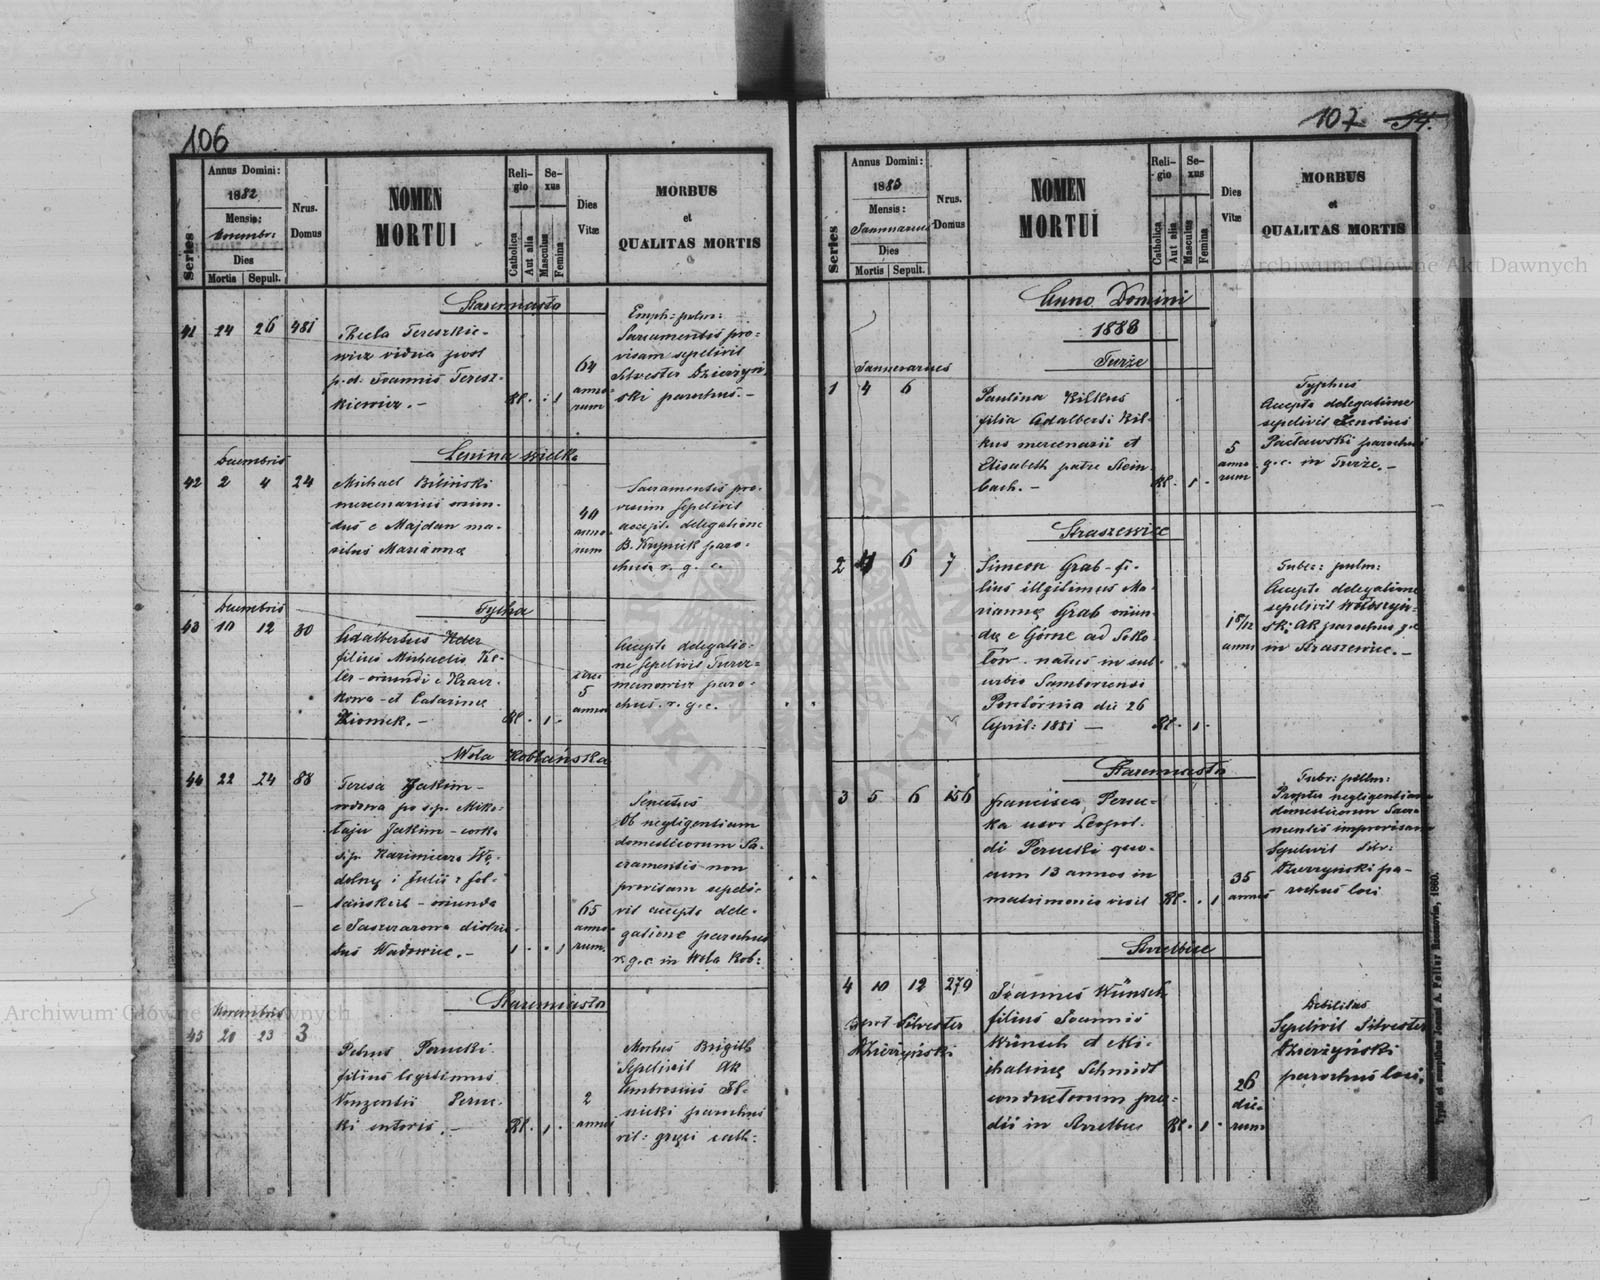 106
Series
Annus Domini:
1882
Mensis:
Novembr:
Dies
Mortis Sepult.
Nrus. Domus
NOMEN
MORTUI
Religio
Catholica
Aut alia
Sexus
Masculus
Femina
Dies Vitæ
MORBUS
et
QUALITAS MORTIS
Staremiasto
41 24 26 481
Thecla Tereszkie-
wicz vidua post
p. d. Joannis Teresz-
kiewicz. -
Rl. 1
64
anno-
rum
Emph: pulm:
Sacramentis pro-
visam sepelivit
Silvester Dzierzyń-
ski parochus. -
Lenina wielka
Decembris
42 2 4 24
Michael Biliński
mercenarius oriun-
dus e Majdan ma-
ritus Mariannæ
40
anno-
rum
Sacramentis pro-
visum sepelivit
accepta delegatione
B. Krynick paro-
chus r. g. c.
Tycha
Decembris
43 10 12 30
Adalbertus Keler
filius Michaelis Ke-
ler - oriundi e
et Catarinæ
Rl. 1
5
annor
Accepta delegatio-
ne sepelivit
paro-
chus. r. g. c.
Wola Koblańska
44 22 24 88
Teresa Jakim -
wdowa po s.p. Miko-
łaju Jakim - córka
s.p. Kazimierza
i Julii
oriunda
e distric-
tus Wadowice. -
1 1
65
anno-
rum
Senectus
Ob negligentiam
domesticorum Sa-
cramentis non
provisam sepeli-
vit accepta dele-
gatione parochus
r. g. c. in Wola Kob:
Staremiasto
Novembris
45 20 23 3
Petrus Perucki
filius legitimus
Vinzentii Peruc-
ki
Rl. 1
2
annor
Morbus Brigitt
Sepelivit AR
Ambrosius
parochus
rit: græci cath:
107 54.
Series
Annus Domini:
1883
Mensis:
Januarius
Dies
Mortis Sepult.
Nrus. Domus
NOMEN
MORTUI
Religio
Catholica
Aut alia
Sexus
Masculus
Femina
Dies Vitæ
MORBUS
et
QUALITAS MORTIS
Anno Domini
1883
Turze
Januarius
1 4 6
Paulina Kilkus
filia Adalberti Kil-
kus mercenarii et
Elisabeth patre Stein-
bach. -
Rl. 1
5
anno-
rum
Typhus
Accepta delegatione
sepelivit Zenobius
Pacławski parochus
g. c. in Turze. -
Straszewice
2 4 6 7
Simeon Grab - fi-
lius illgitimus Ma-
riannæ Grab oriun-
dæ e Górne ad Soko-
łów - natus in sub-
urbio Samboriensi
Powtórnia die 26
April: 1881 -
Rl. 1
1 8/12
anni
Tuber: pulm:
Accepta delegatione
sepelivit Wołoszyń-
ski AR parochus g. c.
in Straszewice. -
Staremiasto
3 5 6 156
Francisca Peruc-
ka uxor Leopol-
di Perucki quo-
cum 13 annos in
matrimonio vixit
Rl. 1
35
annos
Tubr: pulm:
Propter negligentiam
domesticorum Sacra-
mentis improvisam
Sepelivit Silv:
Dzierzyński pa-
rochus loci
Strzelbice
4 10 12 279
Bapt Silvester
Dzierżyński
Joannes Wünsch
filius Joannis
Wünsch et Mi-
chalinæ Schmidt
conductorum præ-
dii in Strzelbice
Rl. 1
26
die-
rum
Debilitas
Sepelivit Silvester
Dzierżyński
parochus loci.
Typis et sumptibus Joann. A. Pellar Resoviæ, 1860.
Archiwum Główne Akt Dawnych
Archiwum Główne Akt Dawnych